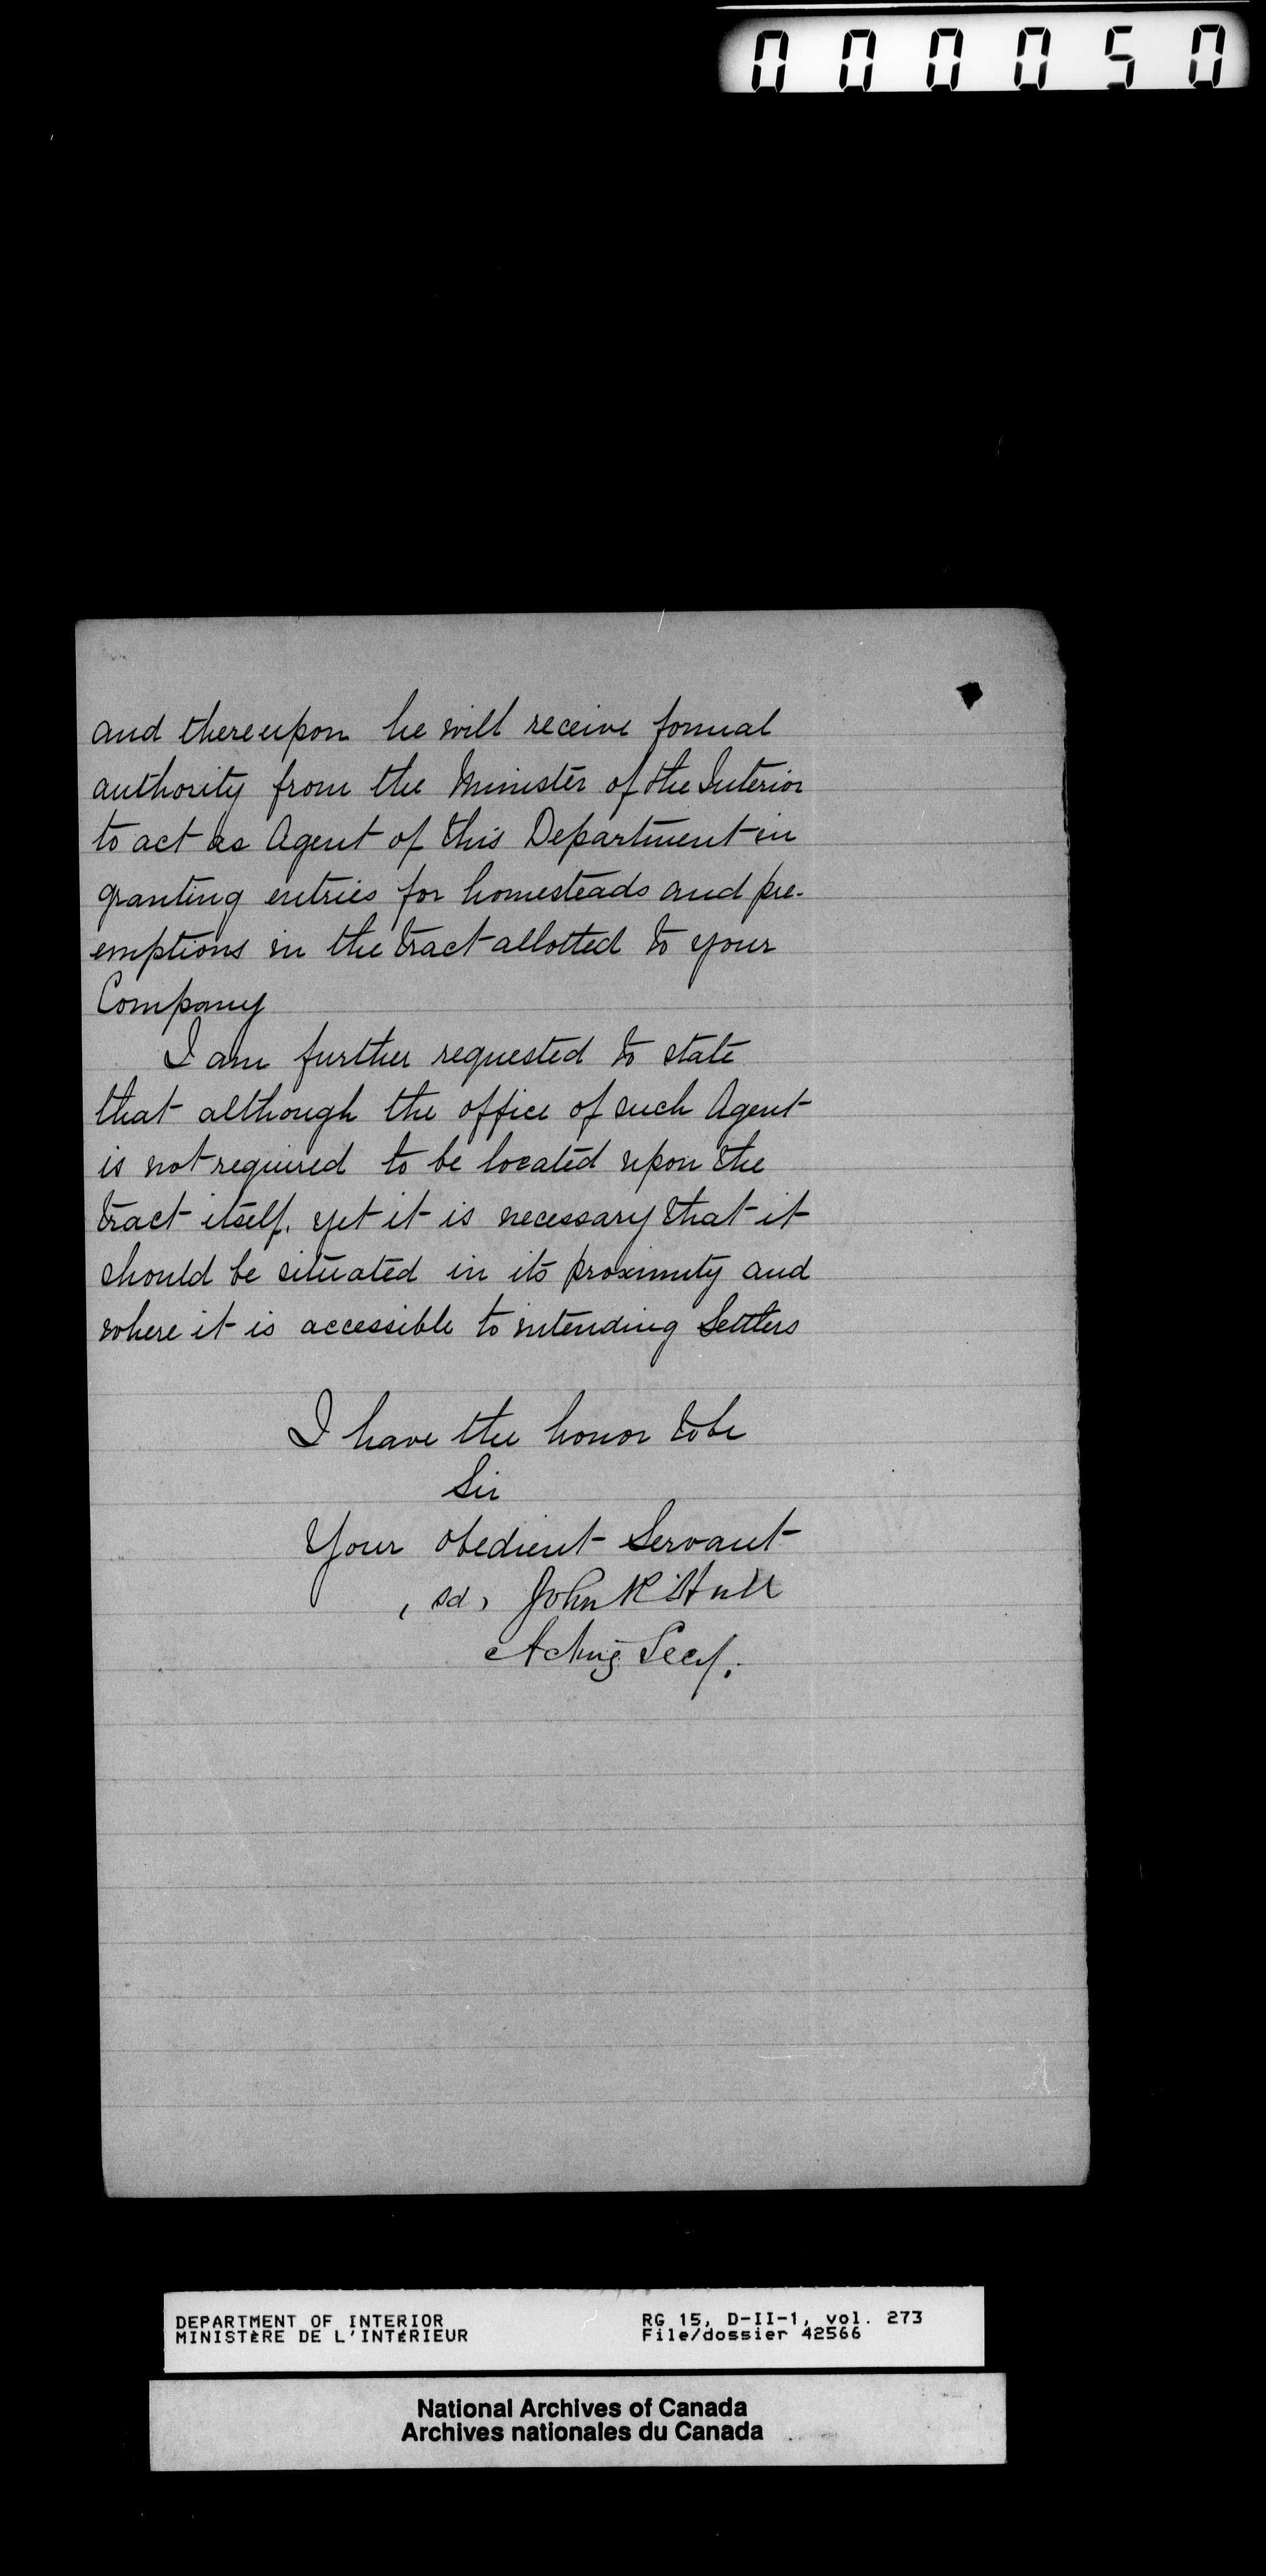 000050
and thereupon he will receive formal
authority from the Minister of the Interior
to act as Agent of this Department in
granting entries for homesteads and pre-
emptions in the tract allotted to your
Company
I am further requested to state
that although the office of such Agent
is not required to be located upon the
tract itself, yet it is necessary that it
should be situated in its proximity and
where it is accessible to intending Settlers
I have the honor to be
Sir
Your obedient Servant
(sd) John R Hall
Acting Secy.
DEPARTMENT OF INTERIOR RG 15, D-II-1, vol. 273
MINISTÈRE DE L'INTÉRIEUR File/dossier 42566
National Archives of Canada
Archives nationales du Canada